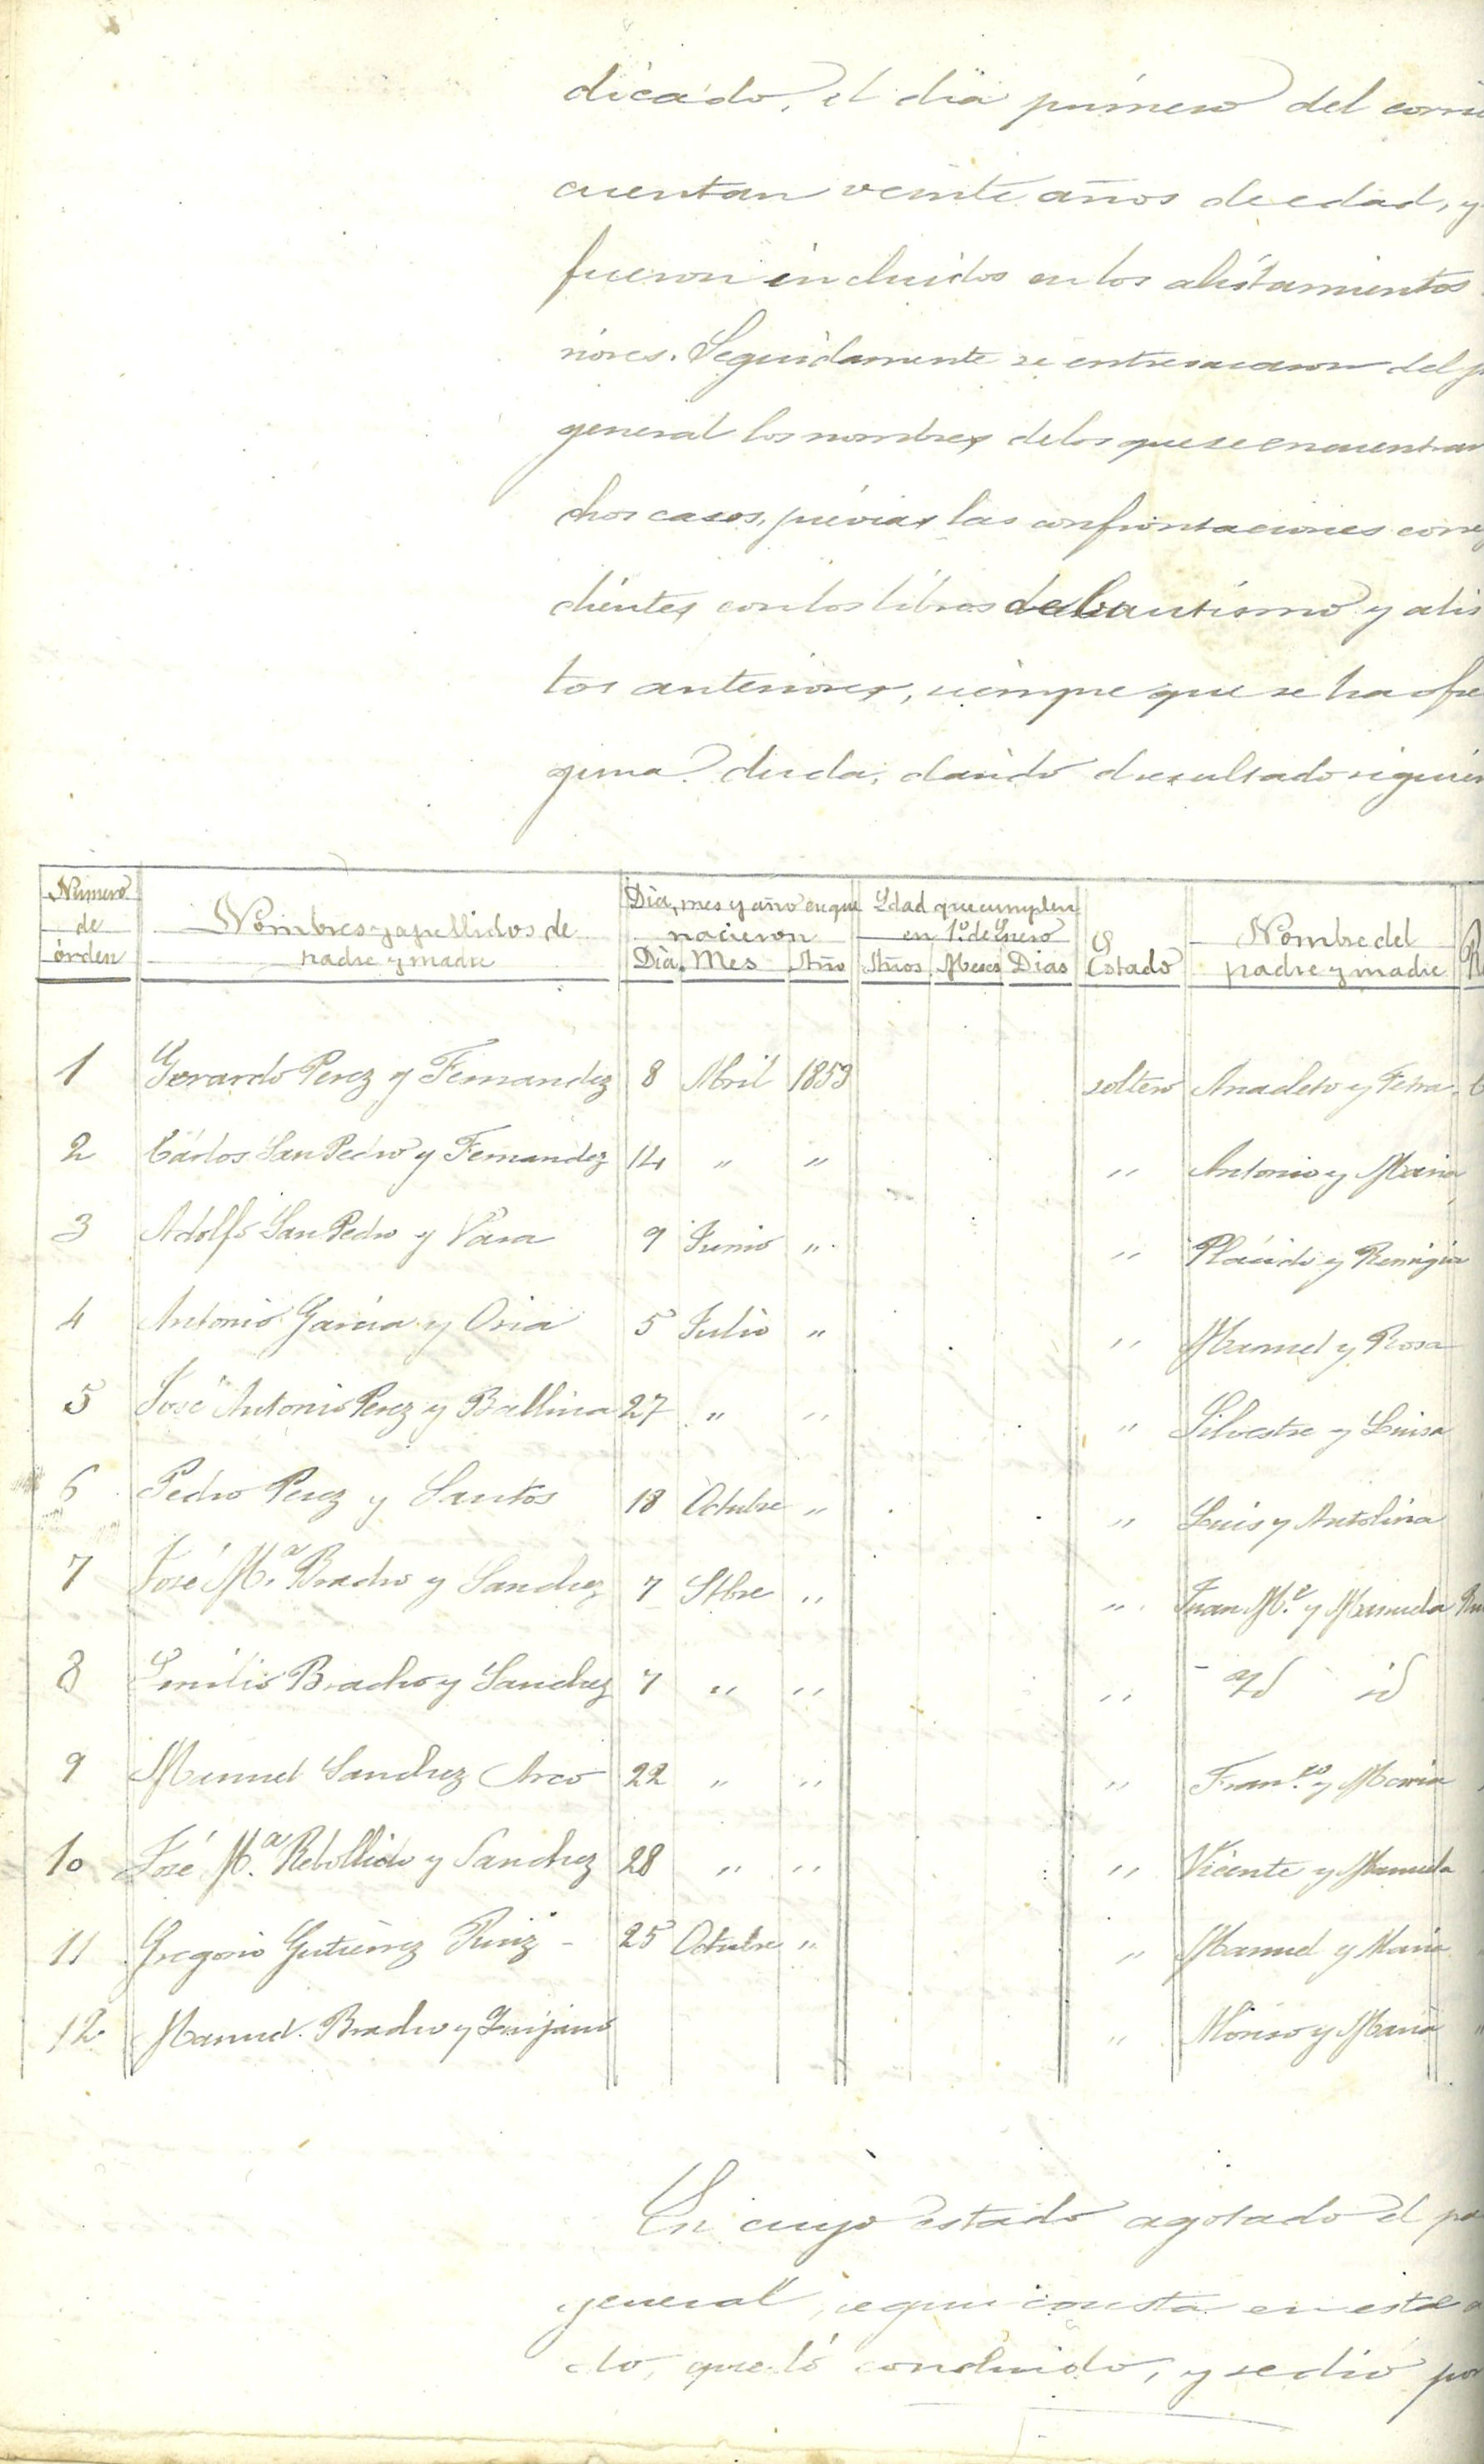 dicado, el dia primero del corri
cuentan veinte años de edad, y
fueron incluidos en los alistamientos
riores. Seguidamente se entresacaron del p
general los nombres de los que se encuentran
chos casos, prévias las confrontaciones corres
dientes con los libros de bautismo y alis
tos anteriores, siempre que se ha ofre
guna duda, dando el resultado siguien
Numero de órden Nombres y apellidos de padre y madre Dia, mes y año en que nacieron Dia Mes Año Edad que cumplen en 1º de Enero Años Meses Dias Estado Nombre del padre y madre
1 Gerardo Perez y Fernandez 8 Abril 1853 soltero Anacleto y Petra
2 Cárlos San Pedro y Fernandez 14 " " " Antonio y Maria
3 Adolfo San Pedro y Vara 9 Junio " " Plácido y Remigia
4 Antonio Garcia y Oria 5 Julio " " Manuel y Rosa
5 José Antonio Perez y Ballina 27 " " " Silvestre y Luisa
6 Pedro Perez y Santos 18 Octubre " " Luis y Antolina
7 José Mª Bracho y Sanchez 7 Stbre " " Juan Mª y Manuela
8 Emilio Bracho y Sanchez 7 " " " Yd id
9 Manuel Sanchez Arco 22 " " " Fran.co y Maria
10 José Mª Rebollido y Sanchez 28 " " " Vicente y Manuela
11 Gregorio Gutierrez Ruiz - 25 Octubre " " Manuel y Maria
12 Manuel Bracho y Quijano " Alonso y Maria
En cuyo estado agotado el pa
general, segun consta en este a
to, quedó concluido, y se dió por